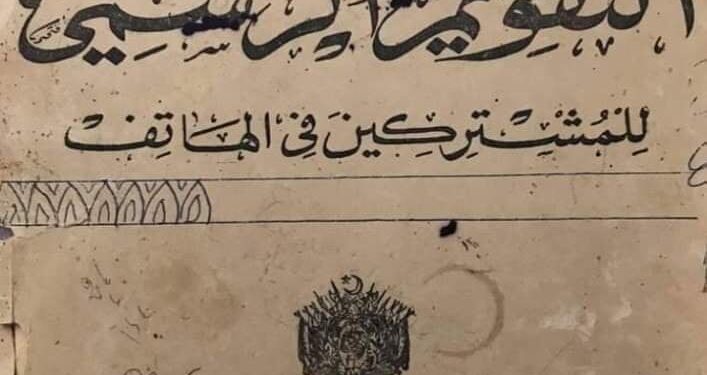 التقويم الرسمي
لِلمُشْتِرِكِينَ فِي الهَاتِفْ